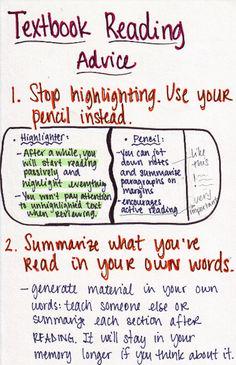 Textbook Reading
Advice
1. Stop highlighting. Use your
pencil instead.
Highlighter:
- After a while, you
will start reading
passively and
highlight everything
- You won't pay attention
to unhighlighted text
when reviewing.
Pencil:
- You can jot
down notes
and summarize
paragraphs on
margins
- encourages
active reading
like
this
!
very
important
2. Summarize what you've
Read in your own words.
- generate material in your own
words: teach someone else or
summarize each section after
READING. It will stay in your
memory longer if you think about it.